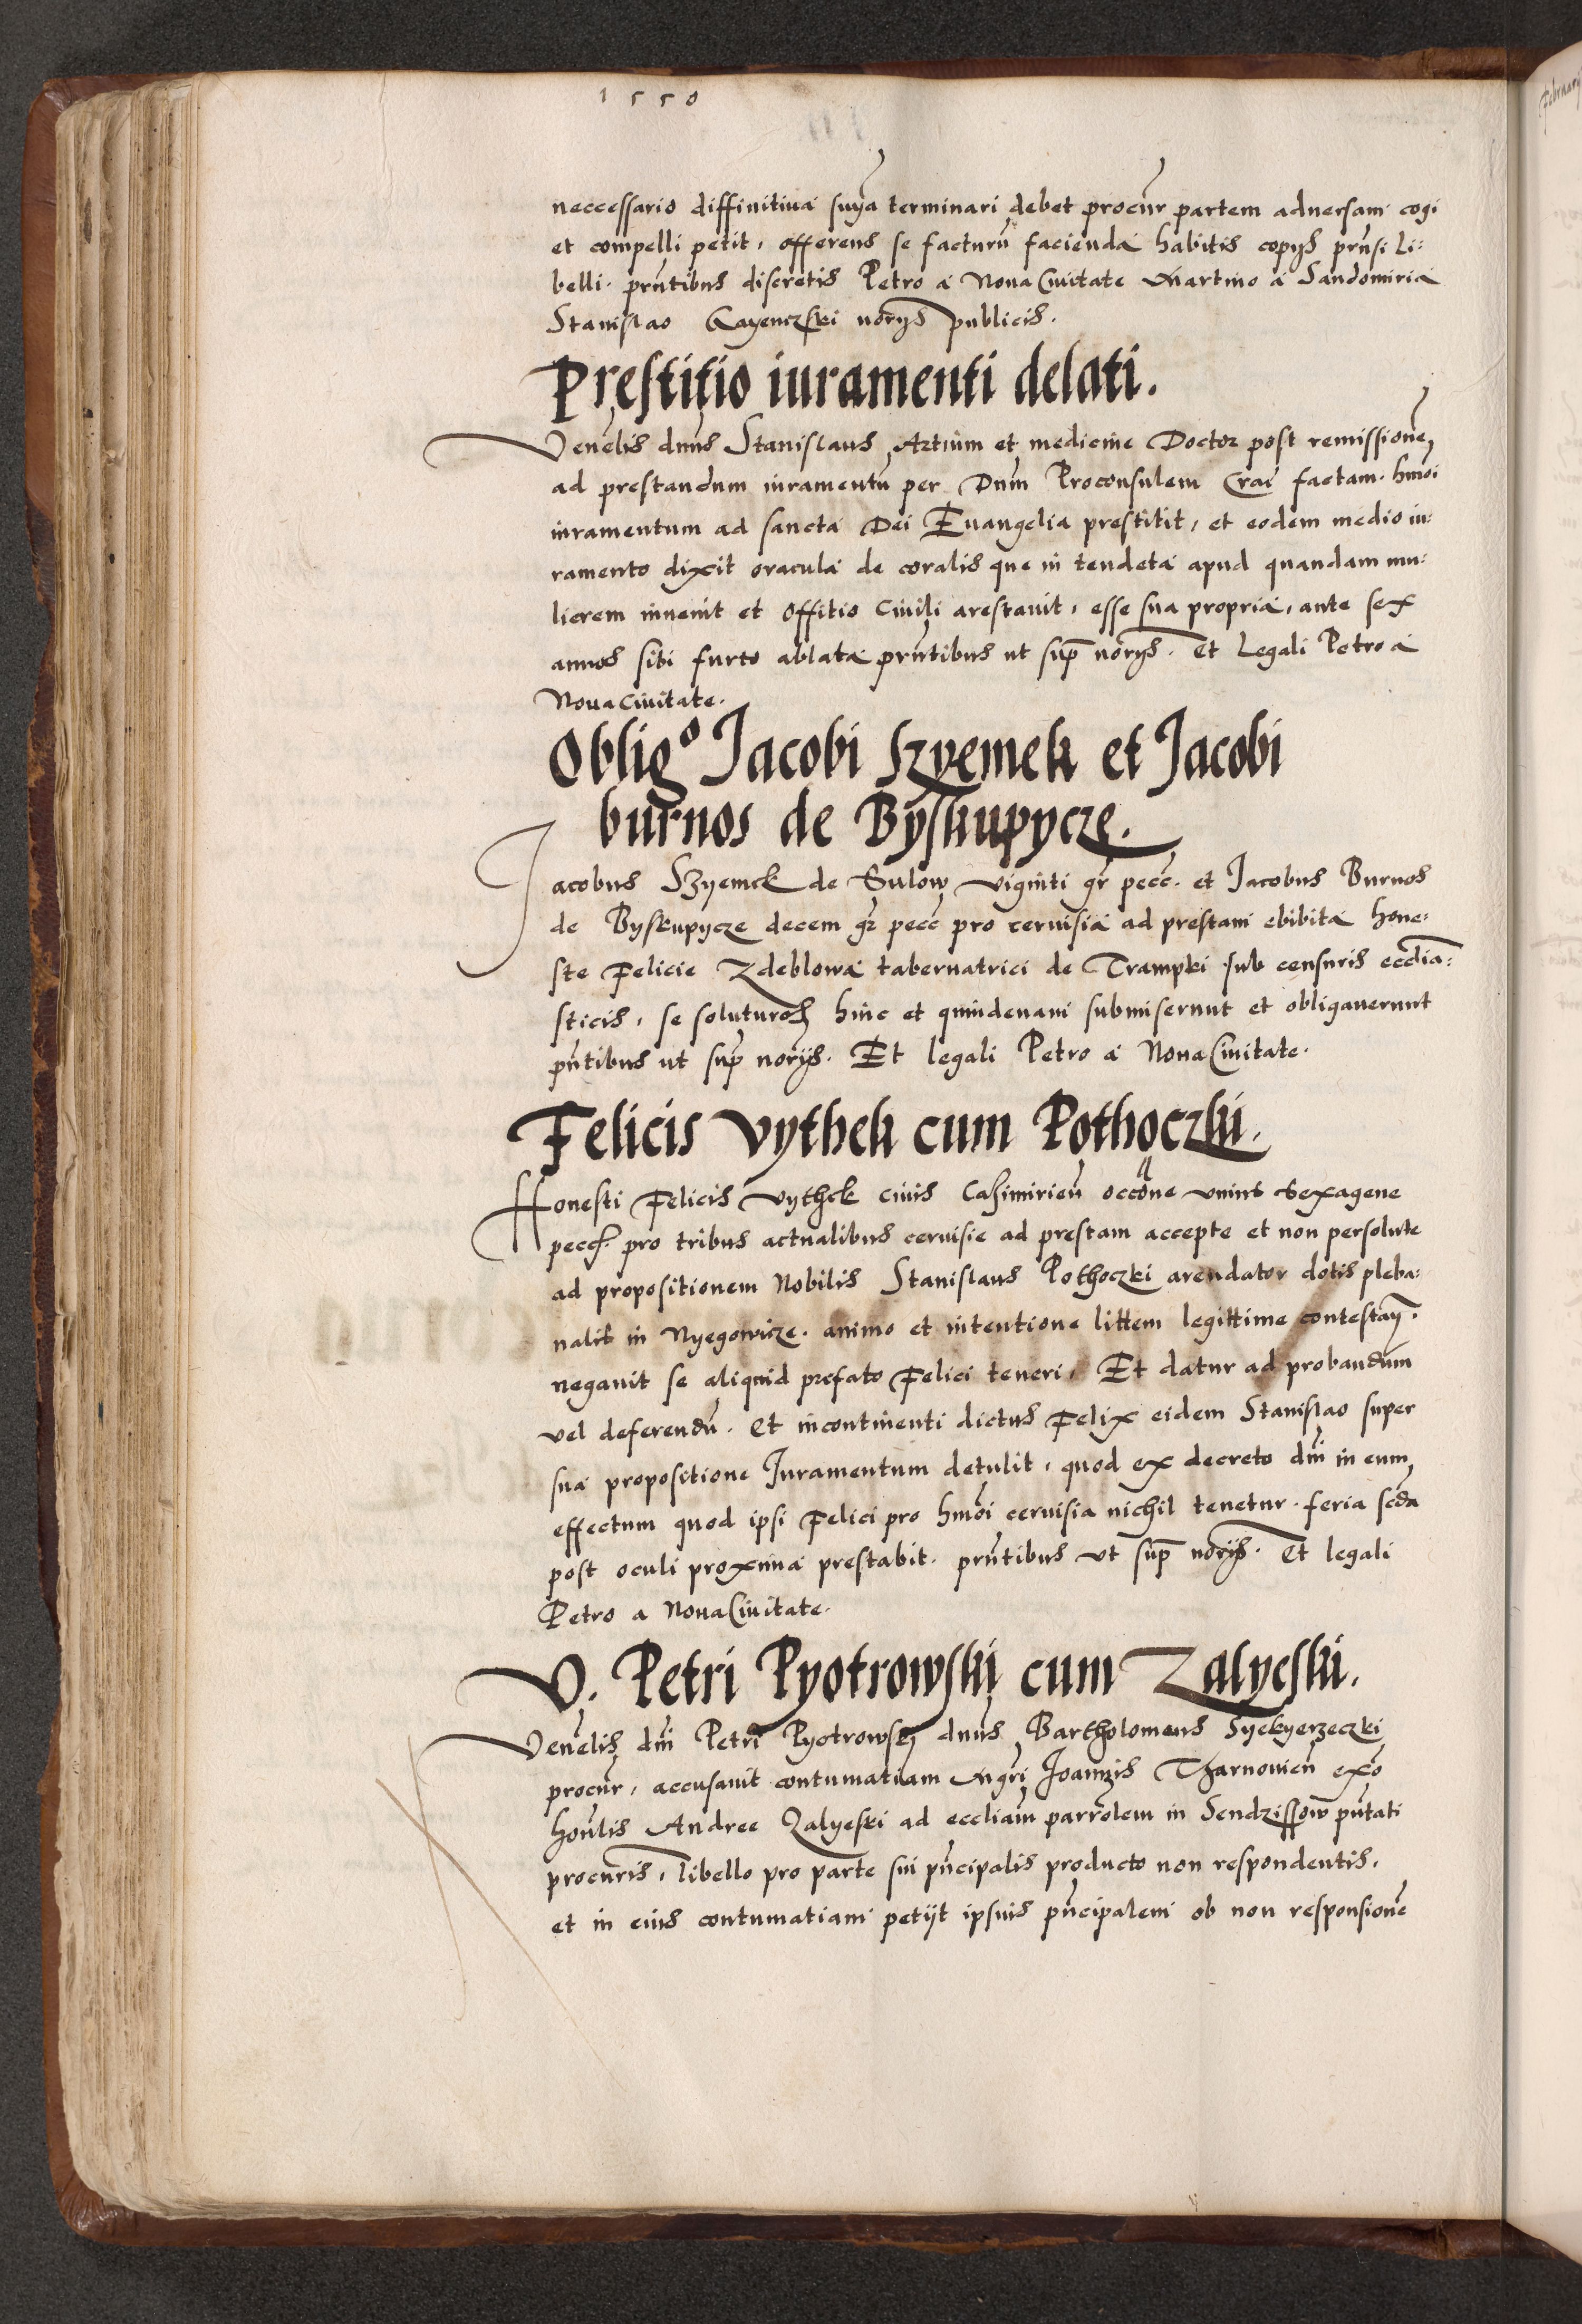 1550
neccessario diffinitiua sn̄ya terminari debet procūr partem aduersam cogi
et compelli petit, offerens se facturū facienda habitis copijs prn̄si Li:
belli. prn̄tibus discretis Petro a Noua Ciuitate Martino a Sandomiria
Stanislao Kayenczski norijs publicis.
Pręstitio iuramenti delati.
Venēlis dnūs Stanislaus Artium et medicine Doctor post remissionē
ad prestandum iuramentū per Dnm̄ Proconsulem Crac̄ factam. hmōi
iuramentum ad sancta Dei Euangelia prestitit, et eodem medio iu:
ramento dixit oracula de coralis que in tendeta apud quandam mu:
lierem inuenit et offitio Ciuili arestauit, esse sua propria, ante sex
annos sibi furto ablata prn̄tibus ut sup̄ norijs. Et Legali Petro a
Noua Ciuitate.
Oblig͞o Jacobi Szyemek et Jacobi
burnos de Byskupycze.
Jacobus Szyemek de Sulow viginti gr̄ pecc̄. et Jacobus Burnos
de Byskupycze decem gr̄ pecc̄ pro ceruisia ad prestam ebibita hone:
ste Felicie Zdeblowa tabernatrici de Trampki sub censuris eccl̄ia:
sticis, se soluturos hinc et quindenam submiserunt et obligauerunt
pn̄tibus ut sup̄ norijs. Et legali Petro a Noua Ciuitate.
Felicis Vythek cum Pothoczki.
Honesti Felicis Vythek ciuis Casimirien̄ occōne vnius sexagene
pecc̄. pro tribus actualibus ceruisie ad prestam accepte et non persolute
ad propositionem Nobilis Stanislaus Pothoczki arendator dotis pleba:
nalis in Nyegowicze. animo et intentione littem legittime contestan̄.
negauit se aliquid prefato Felici teneri, Et datur ad probandum
vel deferendū. Et incontinenti dictus Felix eidem Stanislao super
sua propositione Juramentum detulit, quod ex decreto dn̄i in eum
effectum quod ipsi Felici pro hmōi ceruisia nichil tenetur. feria scd̄a
post oculi proxima prestabit. prn̄tibus vt sup̄ norijs. Et legali
Petro a Noua Ciuitate.
V. Petri Pyotrowski cum Zalyeski.
Venēlis dn̄i Petri Pyotrowsky dnūs Bartholomeus Syekyerzeczki
procūr, accusauit contumatiam Mgri Joannis Tharnouien̄ exo
honlis Andree Zalyeski ad eccliam parrolem in Sendzissow pn̄tati
procuris, libello pro parte sui pn̄cipalis producto non respondentis,
et in eius contumatiam petijt ipsius pn̄cipalem ob non responsionē